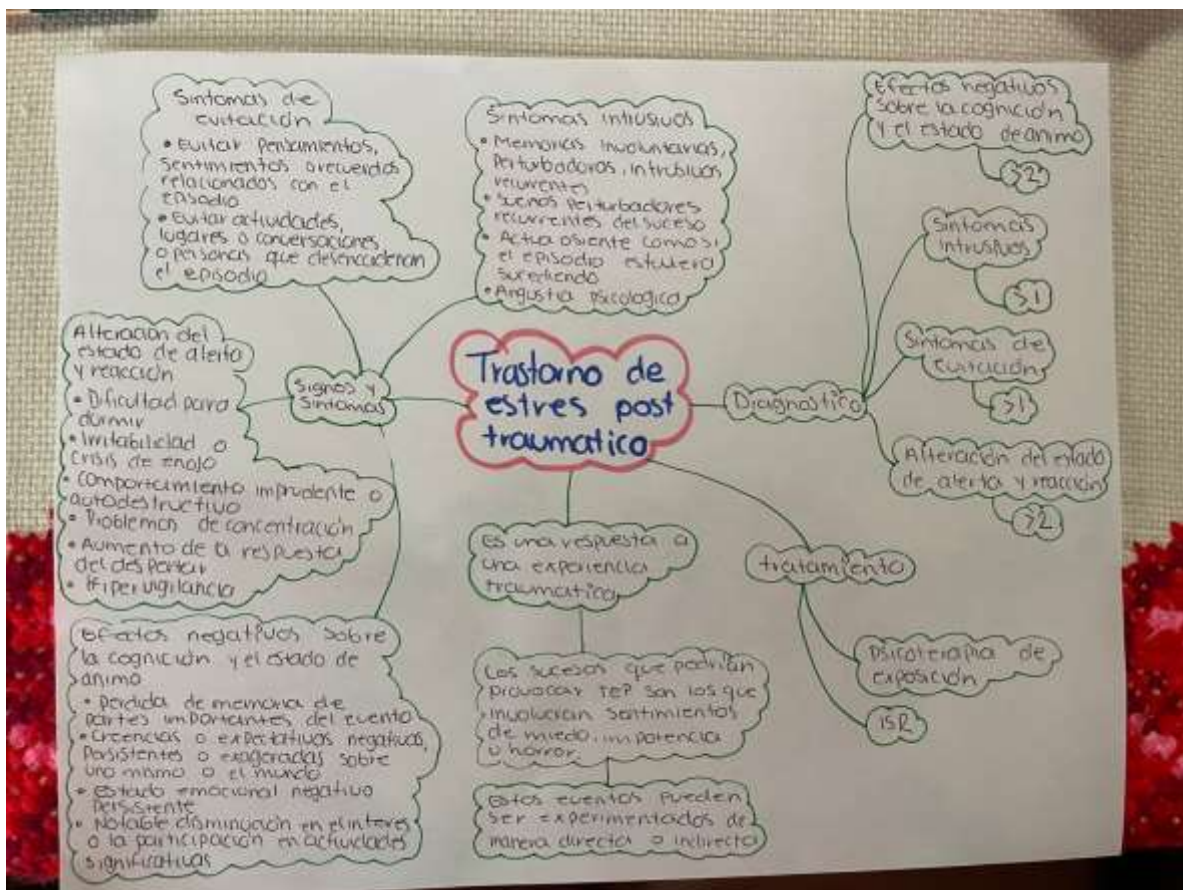 Sintomas de
evitación
• Evitar Pensamientos,
sentimientos o recuerdos
relacionados con el
episodio
• Evitar actividades,
lugares o conversaciones
o personas que desencadenan
el episodio
Sintomas intrusivos
• Memorias Involuntarias,
Perturbadoras, intrusivas
recurrentes
• Sueños perturbadores
recurrentes del suceso
• Actua o siente como si
el episodio estuviera
sucediendo
• Angustia psicologica
Alteración del
estado de alerta
y reacción
• Dificultad para
dormir
• Irritabilidad o
crisis de enojo
• comportamiento imprudente o
autodestructivo
• Problemas de concentración
• Aumento de la respuesta
del despertar
• Hipervigilancia
Signos y
Sintomas
Efectos negativos sobre
la cognición y el estado de
animo
• Perdida de memoria de
partes importantes del evento
• Creencias o expectativas negativas,
Persistentes o exageradas sobre
uno mismo o el mundo
• Estado emocional negativo
persistente
• Notable disminución en el interes
o la participación en actividades
significativas
Trastorno de
estres post
traumatico
Es una respuesta a
una experiencia
traumatica
Los sucesos que podrian
provocar TEP son los que
involucran sentimientos
de miedo, impotencia
u horror
Estos eventos pueden
ser experimentados de
manera directa o indirecta
Diagnostico
Efectos negativos
sobre la cognición
y el estado de animo
Sintomas
intrusivos
Sintomas de
evitación
Alteración del estado
de alerta y reacción
tratamiento
Psicoterapia de
exposición
ISR